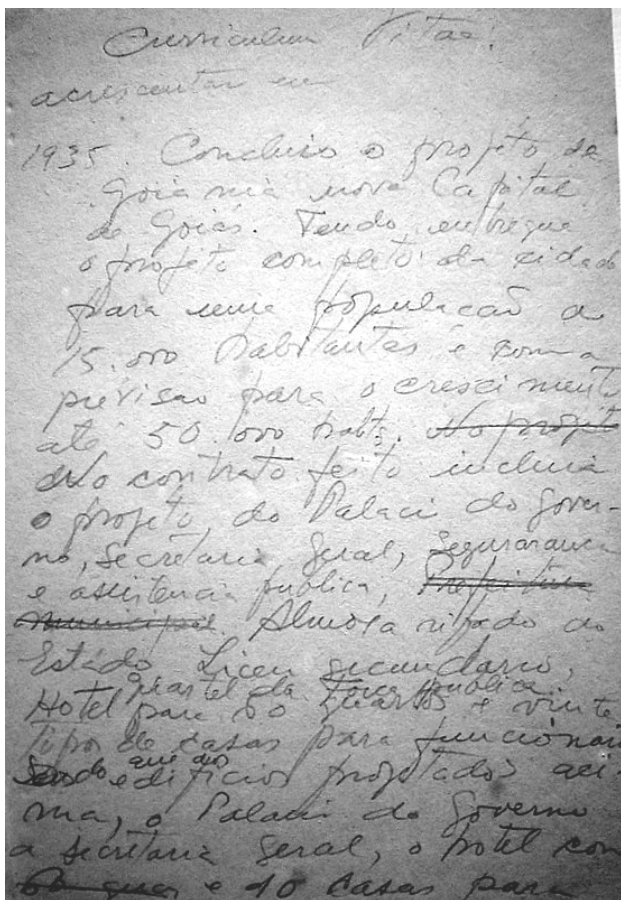 Curriculum Vitae.
acrescentar em
1935. Concluio o projeto de
Goiania nova Capital
de Goiás. Tendo entregue
o projeto completo da cidade
para uma população de
15.000 habitantes e com a
previsao para o crescimento
até 50.000 habts. No projeto
No contrato feito incluia
o projeto, do Palacio do Gover-
no, Secretaria Geral, Segurarança
e assistencia publica, Prefeitura
Municipal. Almoxarifado do
Estado Liceu secundario,
quartel da Força Publica.
Hotel para 60 quartos e vinte
tipos de casas para funcionari
Sendo que dos edificios projetados aci-
ma, o Palacio do Governo
a secretaria Geral, o hotel com
60 quar e 10 casas para